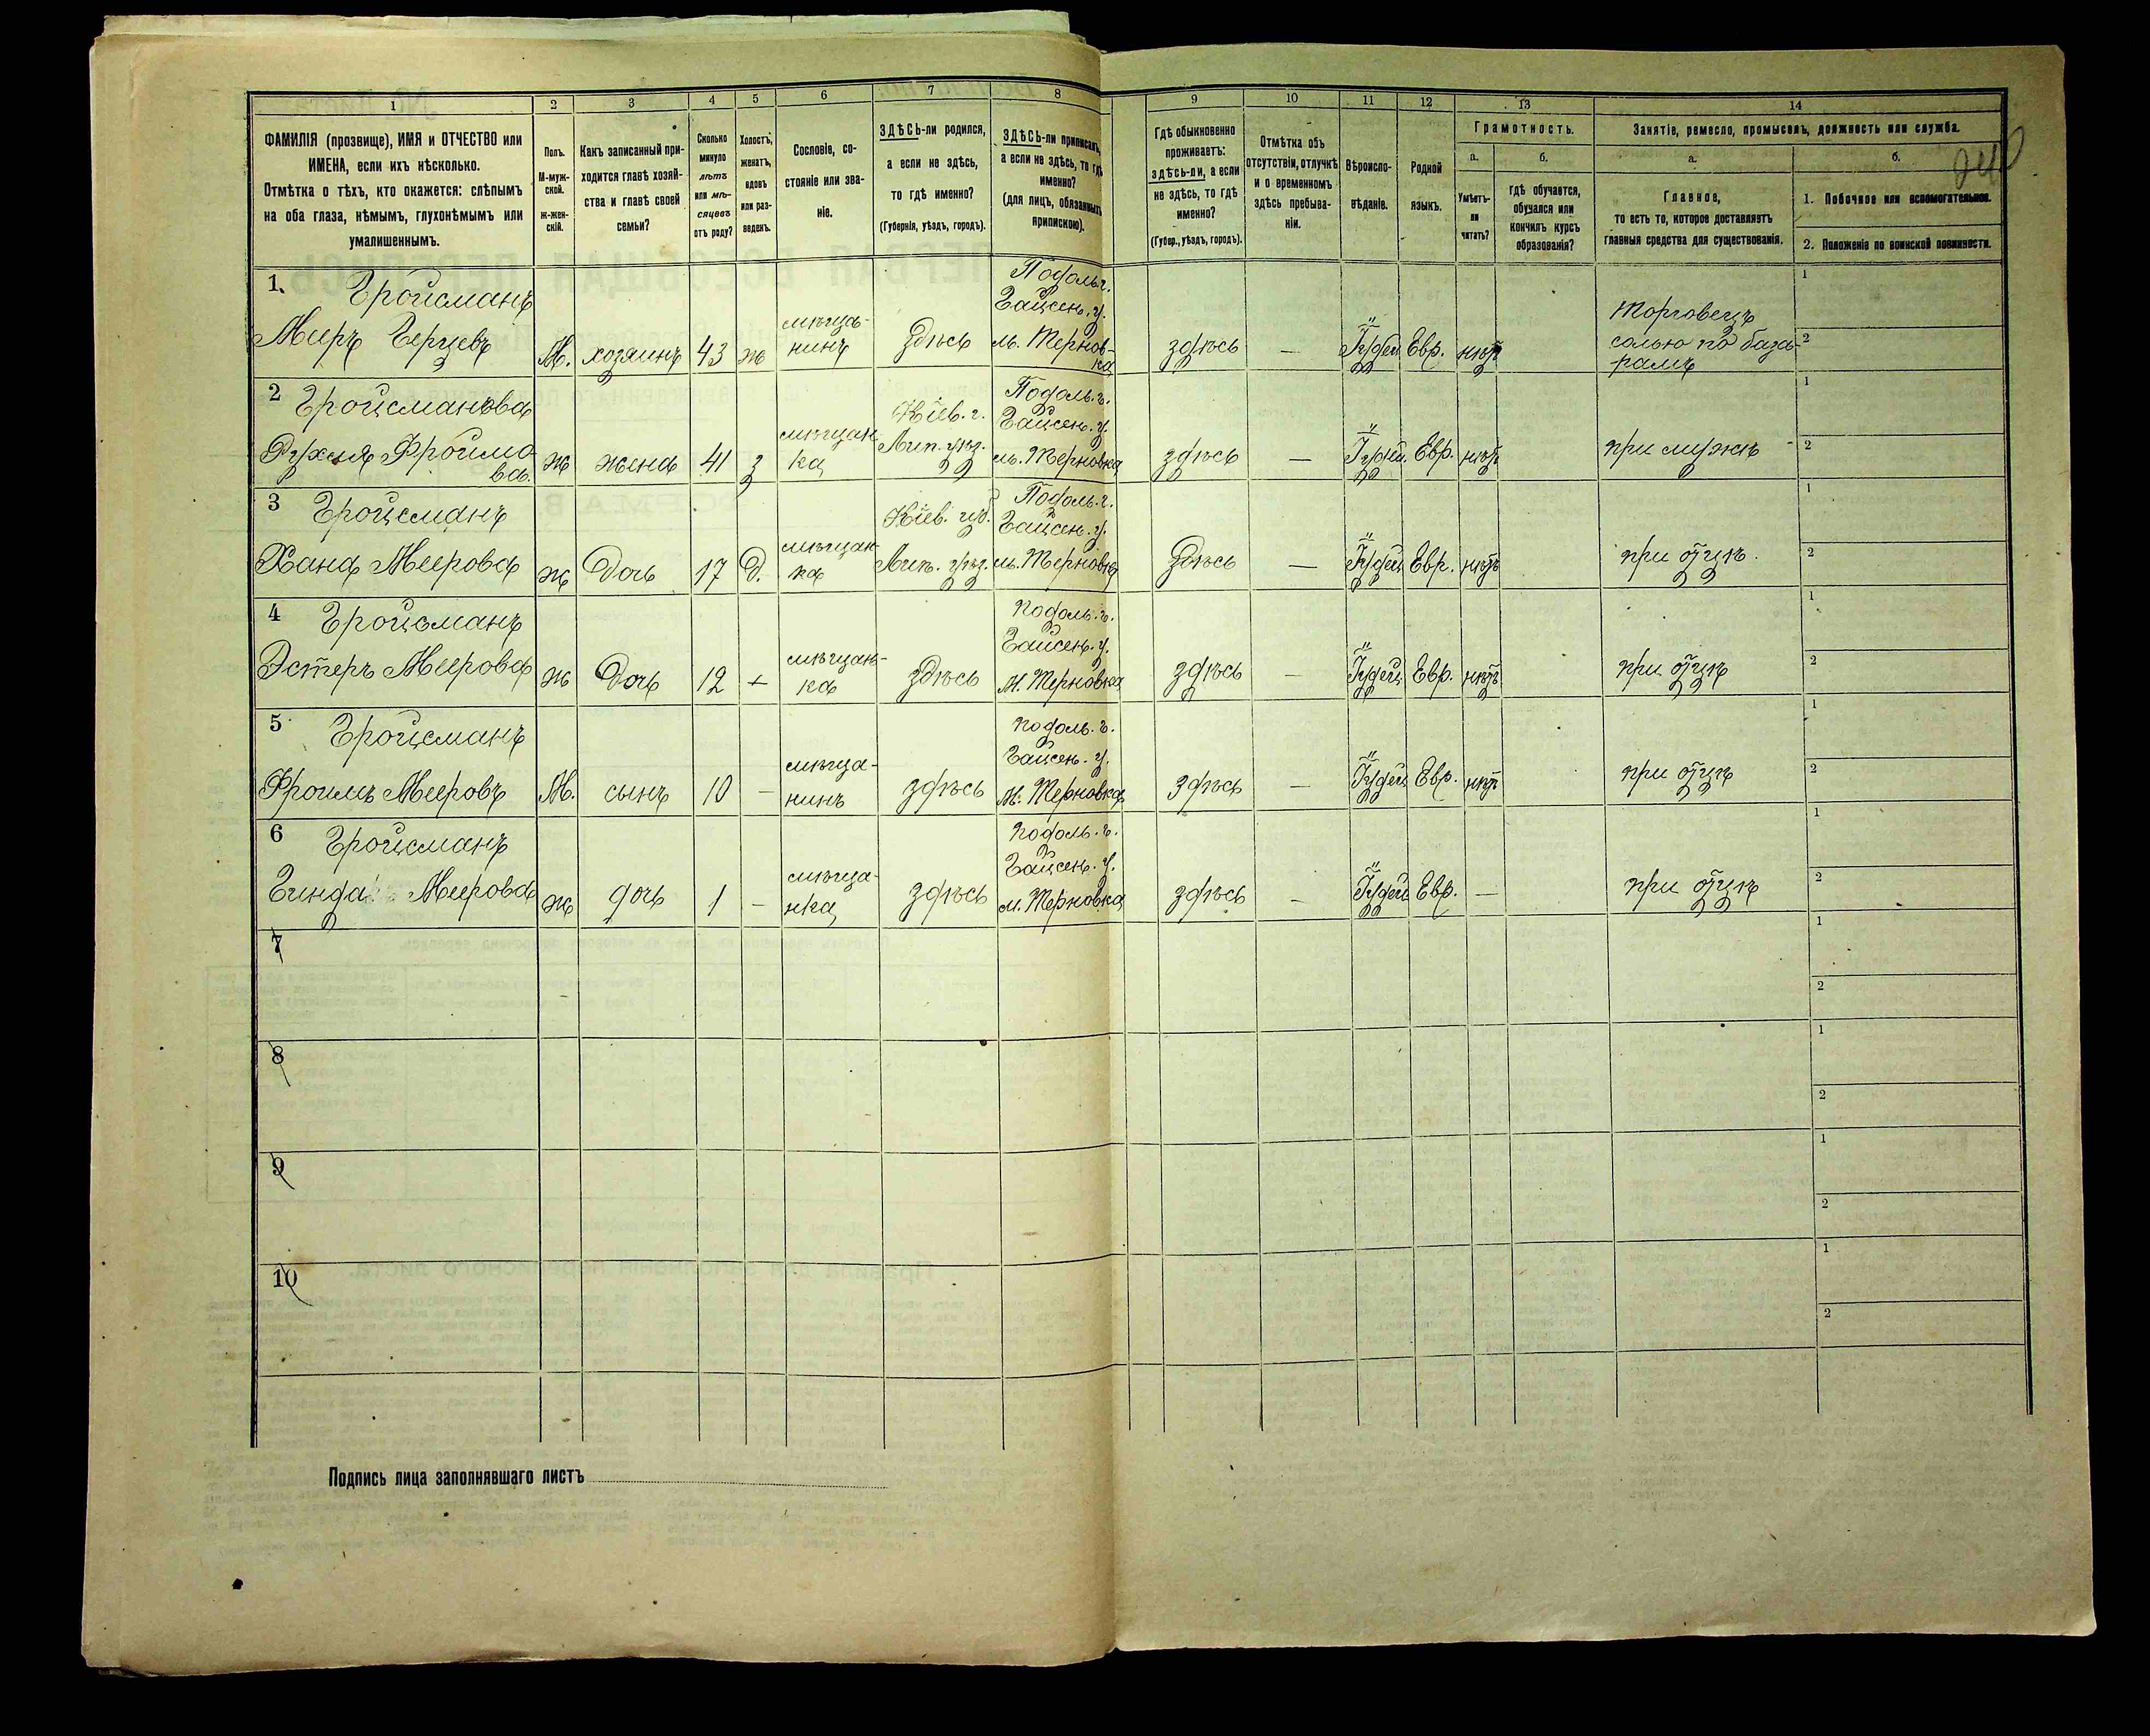 1 2 3 4 5 6 7 8 9 10 11 12 13 14
ФАМИЛІЯ (прозвище), ИМЯ и ОТЧЕСТВО или
ИМЕНА, если ихъ нѣсколько.
Отмѣтка о тѣхъ, кто окажется: слѣпымъ
на оба глаза, нѣмымъ, глухонѣмымъ или
умалишеннымъ.
Полъ.
М-муж-
ской.
ж-жен-
скій.
Какъ записанный при-
ходится главѣ хозяй-
ства и главѣ своей
семьи?
Сколько
минуло
лѣтъ
или мѣ-
сяцевъ
отъ роду?
Холостъ,
женатъ,
вдовъ
или раз-
веденъ.
Сословіе, со-
стояніе или зва-
ніе.
ЗДѢСЬ-ли родился,
а если не здѣсь,
то гдѣ именно?
(Губернія, уѣздъ, городъ).
ЗДѢСЬ-ли приписанъ,
а если не здѣсь, то гдѣ
именно?
(для лицъ, обязанныхъ
припискою).
Гдѣ обыкновенно
проживаетъ:
здѣсь-ли, а если
не здѣсь, то гдѣ
именно?
(Губер., уѣздъ, городъ).
Отмѣтка объ
отсутствіи, отлучкѣ
и о временномъ
здѣсь пребыва-
ніи.
Вѣроиспо-
вѣданіе.
Родной
языкъ.
Грамотность.
а.
Умѣетъ-
ли
читать?
б.
Гдѣ обучается,
обучался или
кончилъ курсъ
образованія?
Занятіе, ремесло, промыселъ, должность или служба.
а.
Главное,
то есть то, которое доставляетъ
главныя средства для существованія.
б.
1. Побочное или вспомогательное.
2. Положеніе по воинской повинности.
240
1. Гройсманъ
Меиръ Герцевъ
М.
хозяинъ
43
ж
мѣща-
нинъ
Здѣсь
Подоль г.
Гайсен. у.
м. Тернов-
ка
здѣсь
—
Іудей
Евр.
нѣтъ
Торговецъ
солью по база-
рамъ
1
2
2 Гройсманова
Фроимо
ва.
ж
жена
41
з
мѣщан
ка
Кіев. г.
Лип. уѣз.
Подоль. г.
Гайсен. у.
м. Терновка
здѣсь
—
Іудей.
Евр.
нѣтъ
при мужѣ
1
2
3 Гройсманъ
Хана Меерова
ж
Дочь
17
Д.
мѣщан-
ка
Кіев. губ.
Лип. уѣз.
Подоль. г.
Гайсен. у.
м. Терновка
Здѣсь
—
Іудей
Евр.
нѣтъ
при отцѣ.
1
2
4 Гройсманъ
Эстеръ Меерова
ж
Дочь
12
мѣщан-
ка
здѣсь
Подоль. г.
Гайсен. у.
м. Терновка
здѣсь
—
Іудей
Евр.
нѣтъ
при отцѣ
1
2
5 Гройсманъ
Фроимъ Мееровъ
М.
сынъ
10
—
мѣща-
нинъ
здѣсь
Подоль. г.
Гайсен. у.
м. Терновка
здѣсь
—
Іудей
Евр.
нѣтъ
при отцѣ
1
2
6 Гройсманъ
Гинда Меерова
ж
дочь
1
—
мѣща-
нка
здѣсь
Подоль. г.
Гайсен. у.
м. Терновка
здѣсь
—
Іудей
Евр.
—
при отцѣ
1
2
7
1
2
8
1
2
9
1
2
10
1
2
Подпись лица заполнявшаго листъ